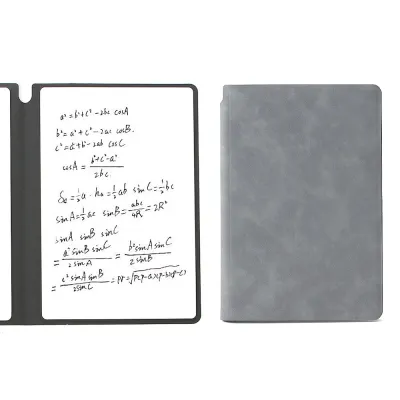 a² = b² + c² - 2bc cosA
b² = a² + c² - 2ac cosB.
c² = a² + b² - 2ab cosC
cosA = (b² + c² - a²) / 2bc
S△ = ½a · ha = ½ab sinC = ½bc
sinA = ½ac sinB = abc/4R = 2R²
sinA sinB sinC
= a² sinB sinC / 2sinA = b² sinA sinC / 2sinB
= c² sinA sinB / 2sinC = pr = √p(p-a)(p-b)(p-c)